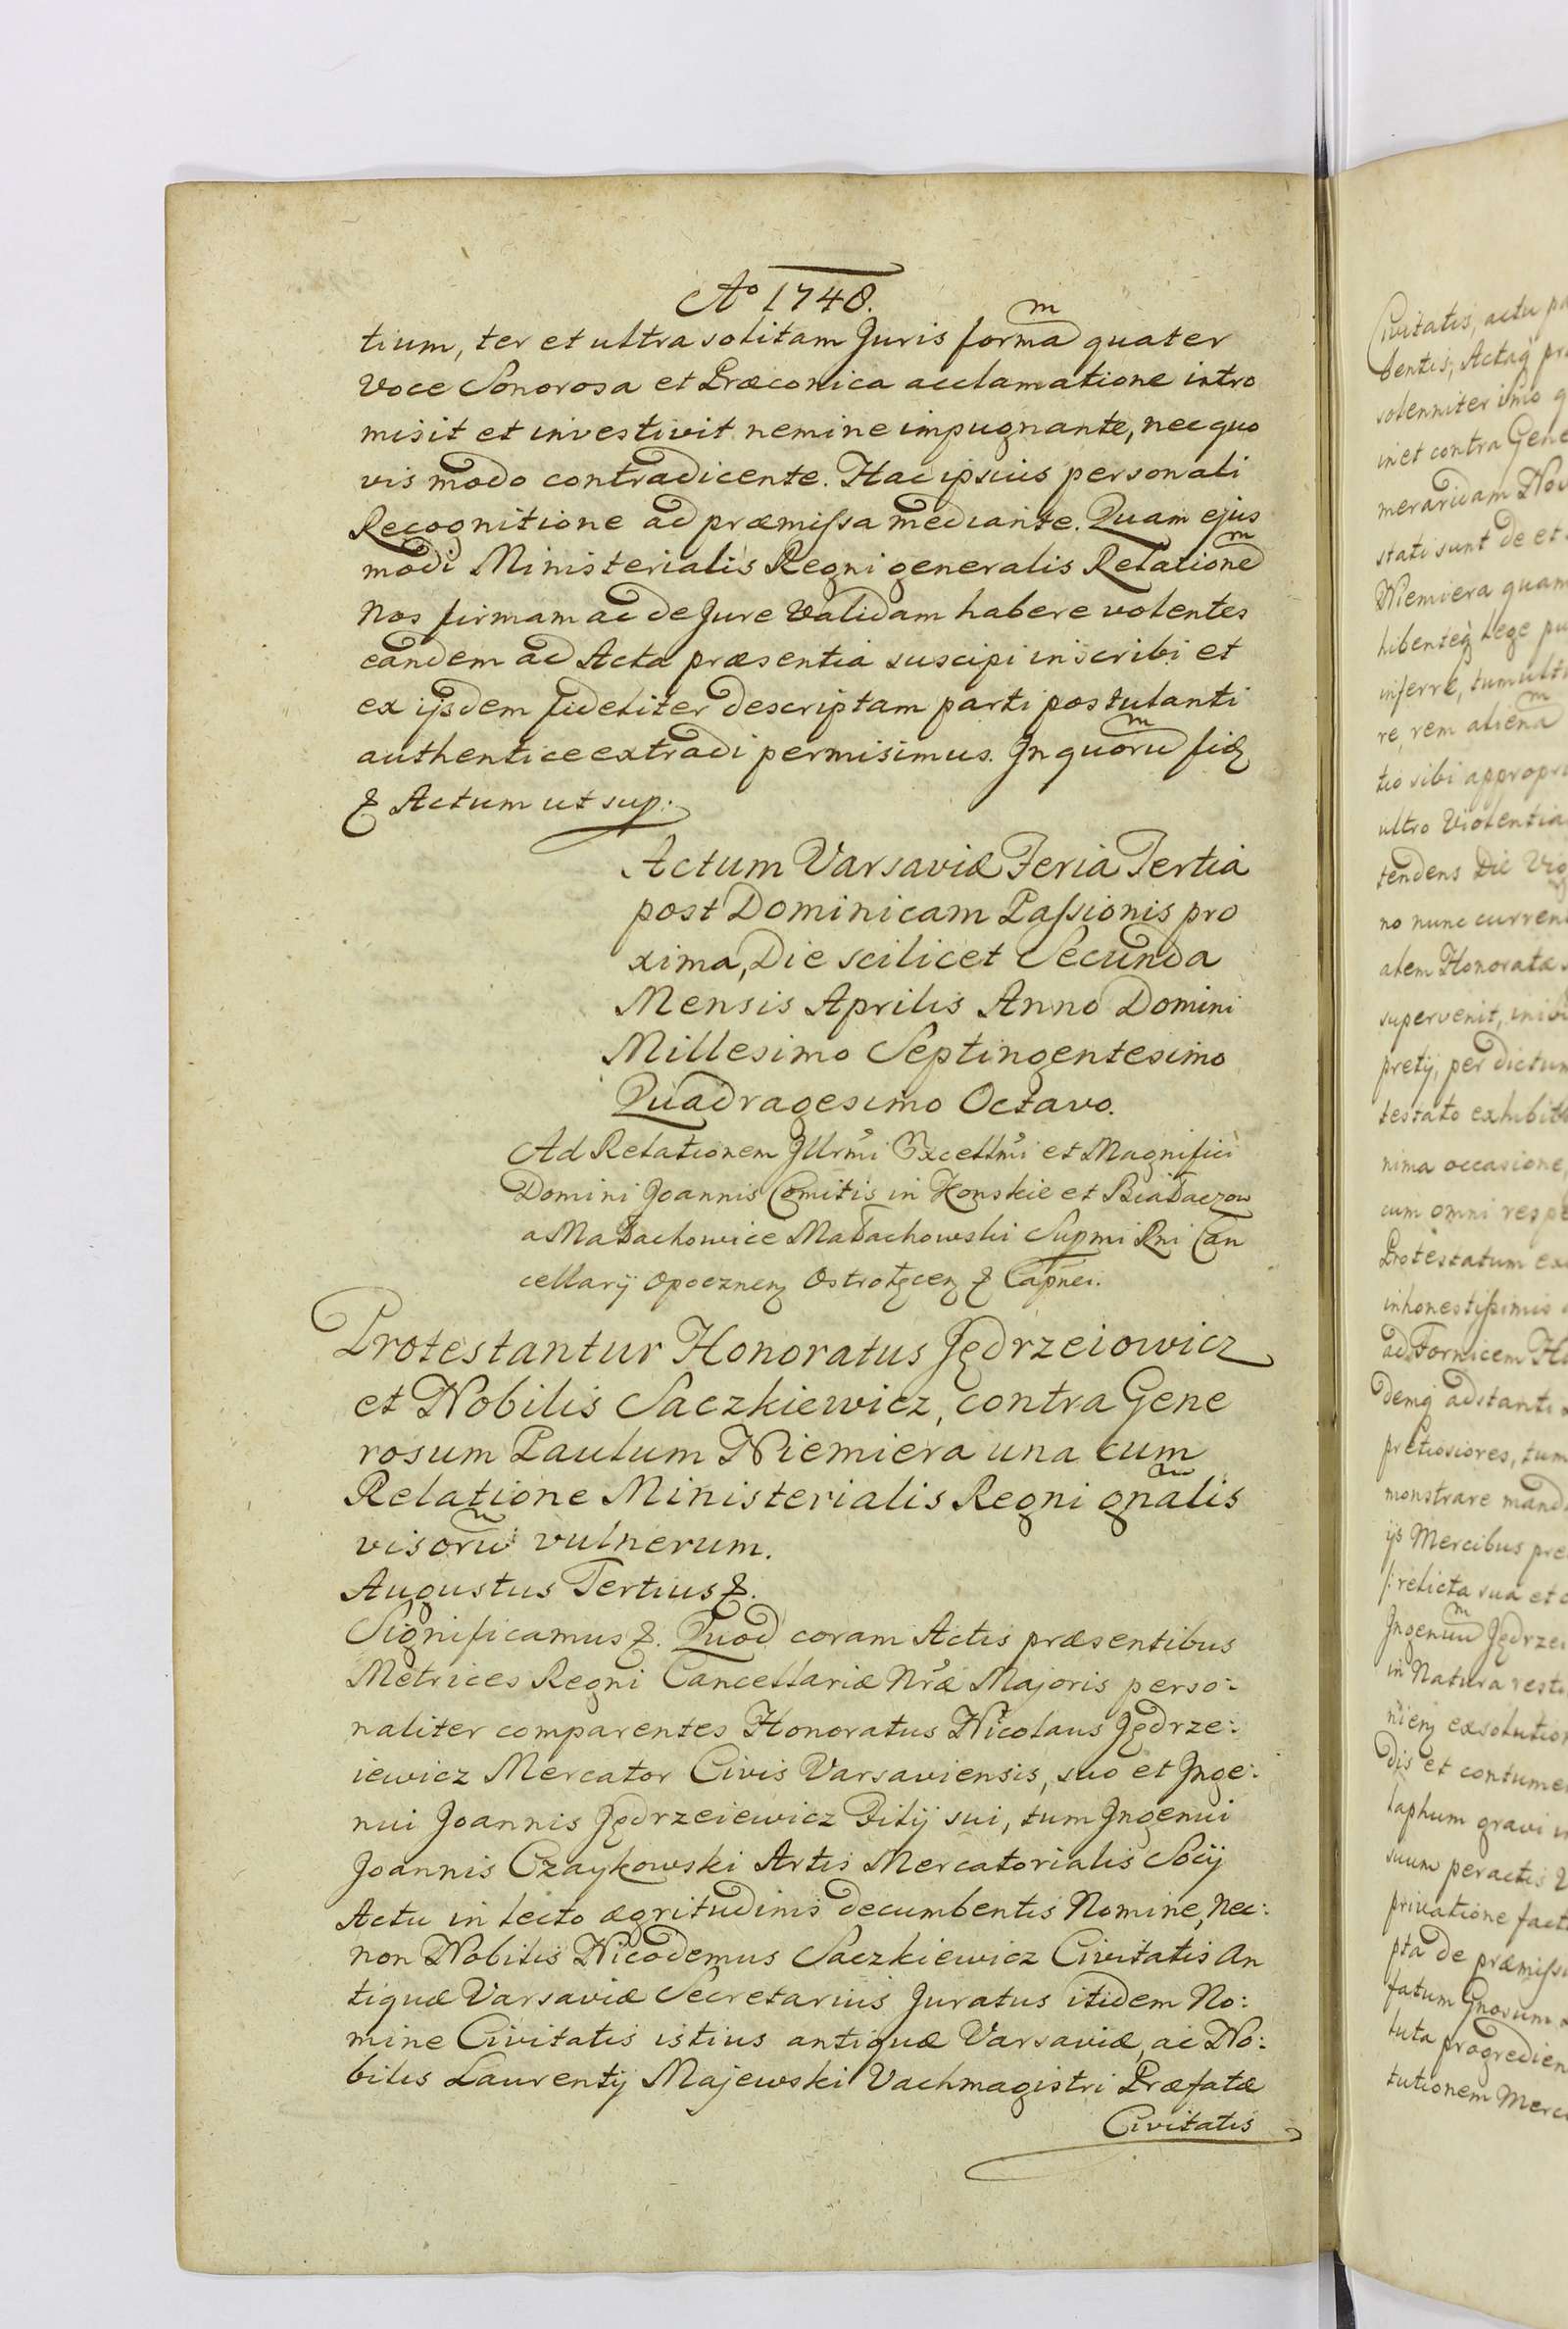 Aº 1748.
tium, ter et ultra solitam Juris formam quater
voce Sonorosa et Præconica acclamatione intro
misit et investivit nemine impugnante, nec quo
vis modo contradicente. Hac ipsius personali
Recognitione ad præmissa mediante. Quam ejus
modi Ministerialis Regni generalis Relationem
Nos firmam ac de Jure Validam habere volentes
eandem ad Acta præsentia suscipi inscribi et
ex ijsdem fideliter descriptam parti postulanti
authentice extradi permisimus. In quorum fidę
& Actum ut sup.
Actum Varsaviæ Feria Tertia
post Dominicam Passionis pro
xima, Die scilicet Secunda
Mensis Aprilis Anno Domini
Millesimo Septingentesimo
Quadragesimo Octavo.
Ad Relationem Illrmi Excellmi et Magnifici
Domini Joannis Comitis in Konskie et Białaczow
a Małachowice Małachowski Supmi Rni Can
cellarij Opocznen Ostrołęcen & Capnei.
Protestantur Honoratus Jędrzeiowicz
et Nobilis Saczkiewicz, contra Gene
rosum Paulum Niemiera una cum
Relatione Ministerialis Regni gnalis
visorum vulnerum.
Augustus Tertius &.
Significamus &. Quod coram Actis præsentibus
Metrices Regni Cancellariæ Nræ Majoris perso:
naliter comparentes Honoratus Nicolaus Jędrze:
iewicz Mercator Civis Varsaviensis, suo et Inge:
nui Joannis Jędrzeiewicz Filij sui, tum Ingenui
Joannis Czaykowski Artis Mercatorialis Socij
Actu in lecto ægritudinis decumbentis Nomine, nec:
non Nobilis Nicodemus Saczkiewicz Civitatis an
tiquæ Varsaviæ Secretarius Juratus itidem No:
mine Civitatis istius antiquæ Varsaviæ, ac No:
bilis Laurentij Majewski Vachmagistri Præfatæ
Civitatis
Civitatis, actu
solenniter
in et contra
stati sunt de et
Niemiera quam
inferre,
re, rem alienam
tio sibi
ultro Violentia
tendens Die
no nunc
supervenit,
pretij, per dictum
testato
nima occasione,
cum omni
Protestatum
inhonestissimis
ad Fornicem
demq adstanti
pretiosiores, tum
monstrare
ijs Mercibus
relicta sua et
Ingenuum
in Natura
dis et
suum peractis
privatione
pta de
fatum Gnosum
tutionem